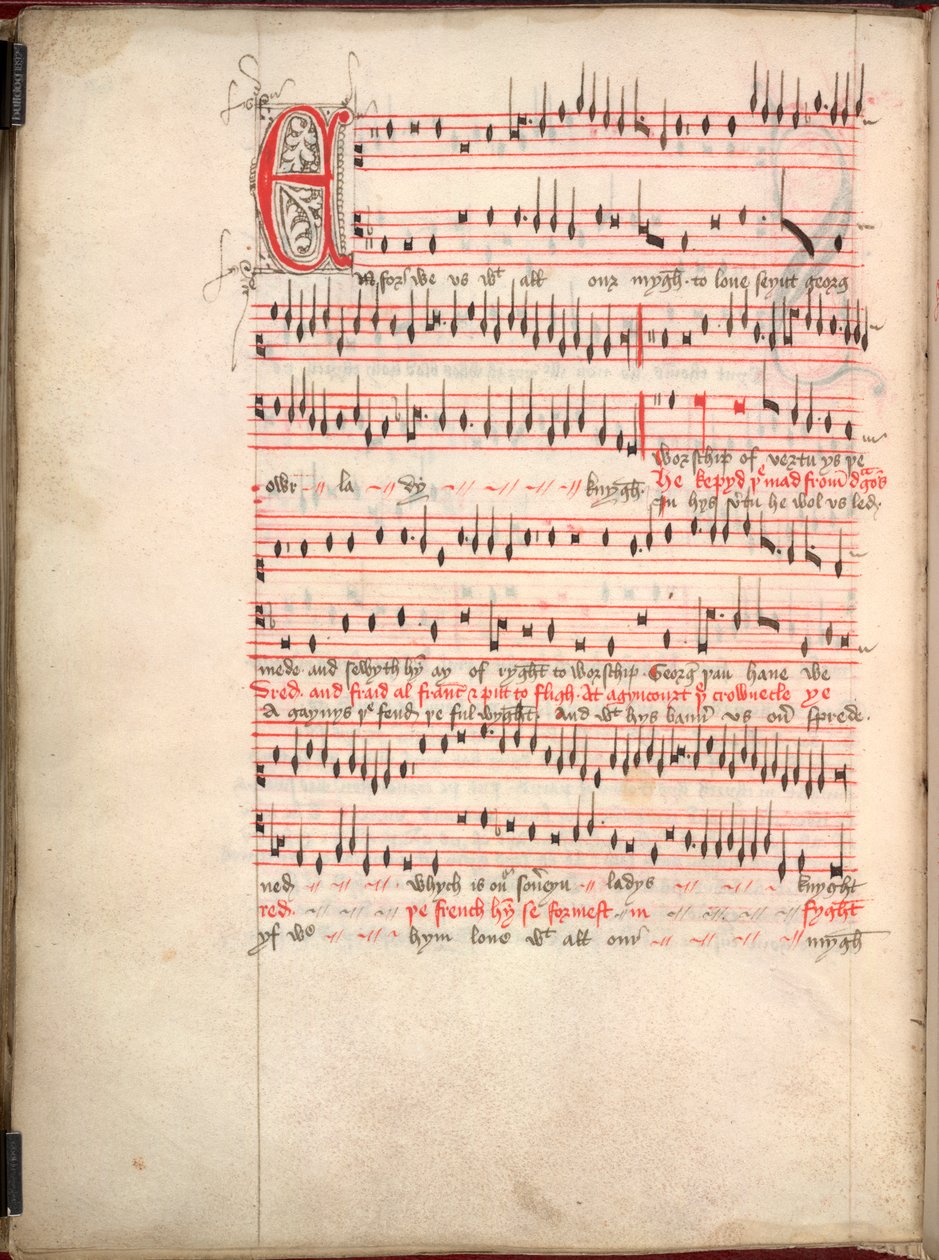 EN for we us wt all our mygh. to love seynt georg
Worschip of vertu ys þe
owr la dy knygh.
He kepyd þe mad from dragōs
In hys v̄tu he wol us led.
mede and sewyth hȳ ay of ryght to worschip Georg þan have we
Dred. and fraid al franc & put to fligh. At agyncourt þe crownecle ye
A gaynys þe fend þe ful wyght. And wt hys baner us on sprede.
ned whych is our soveyn ladys knyght
red. þe french hȳ se formest in fyght
yf we hym love wt all our mygh